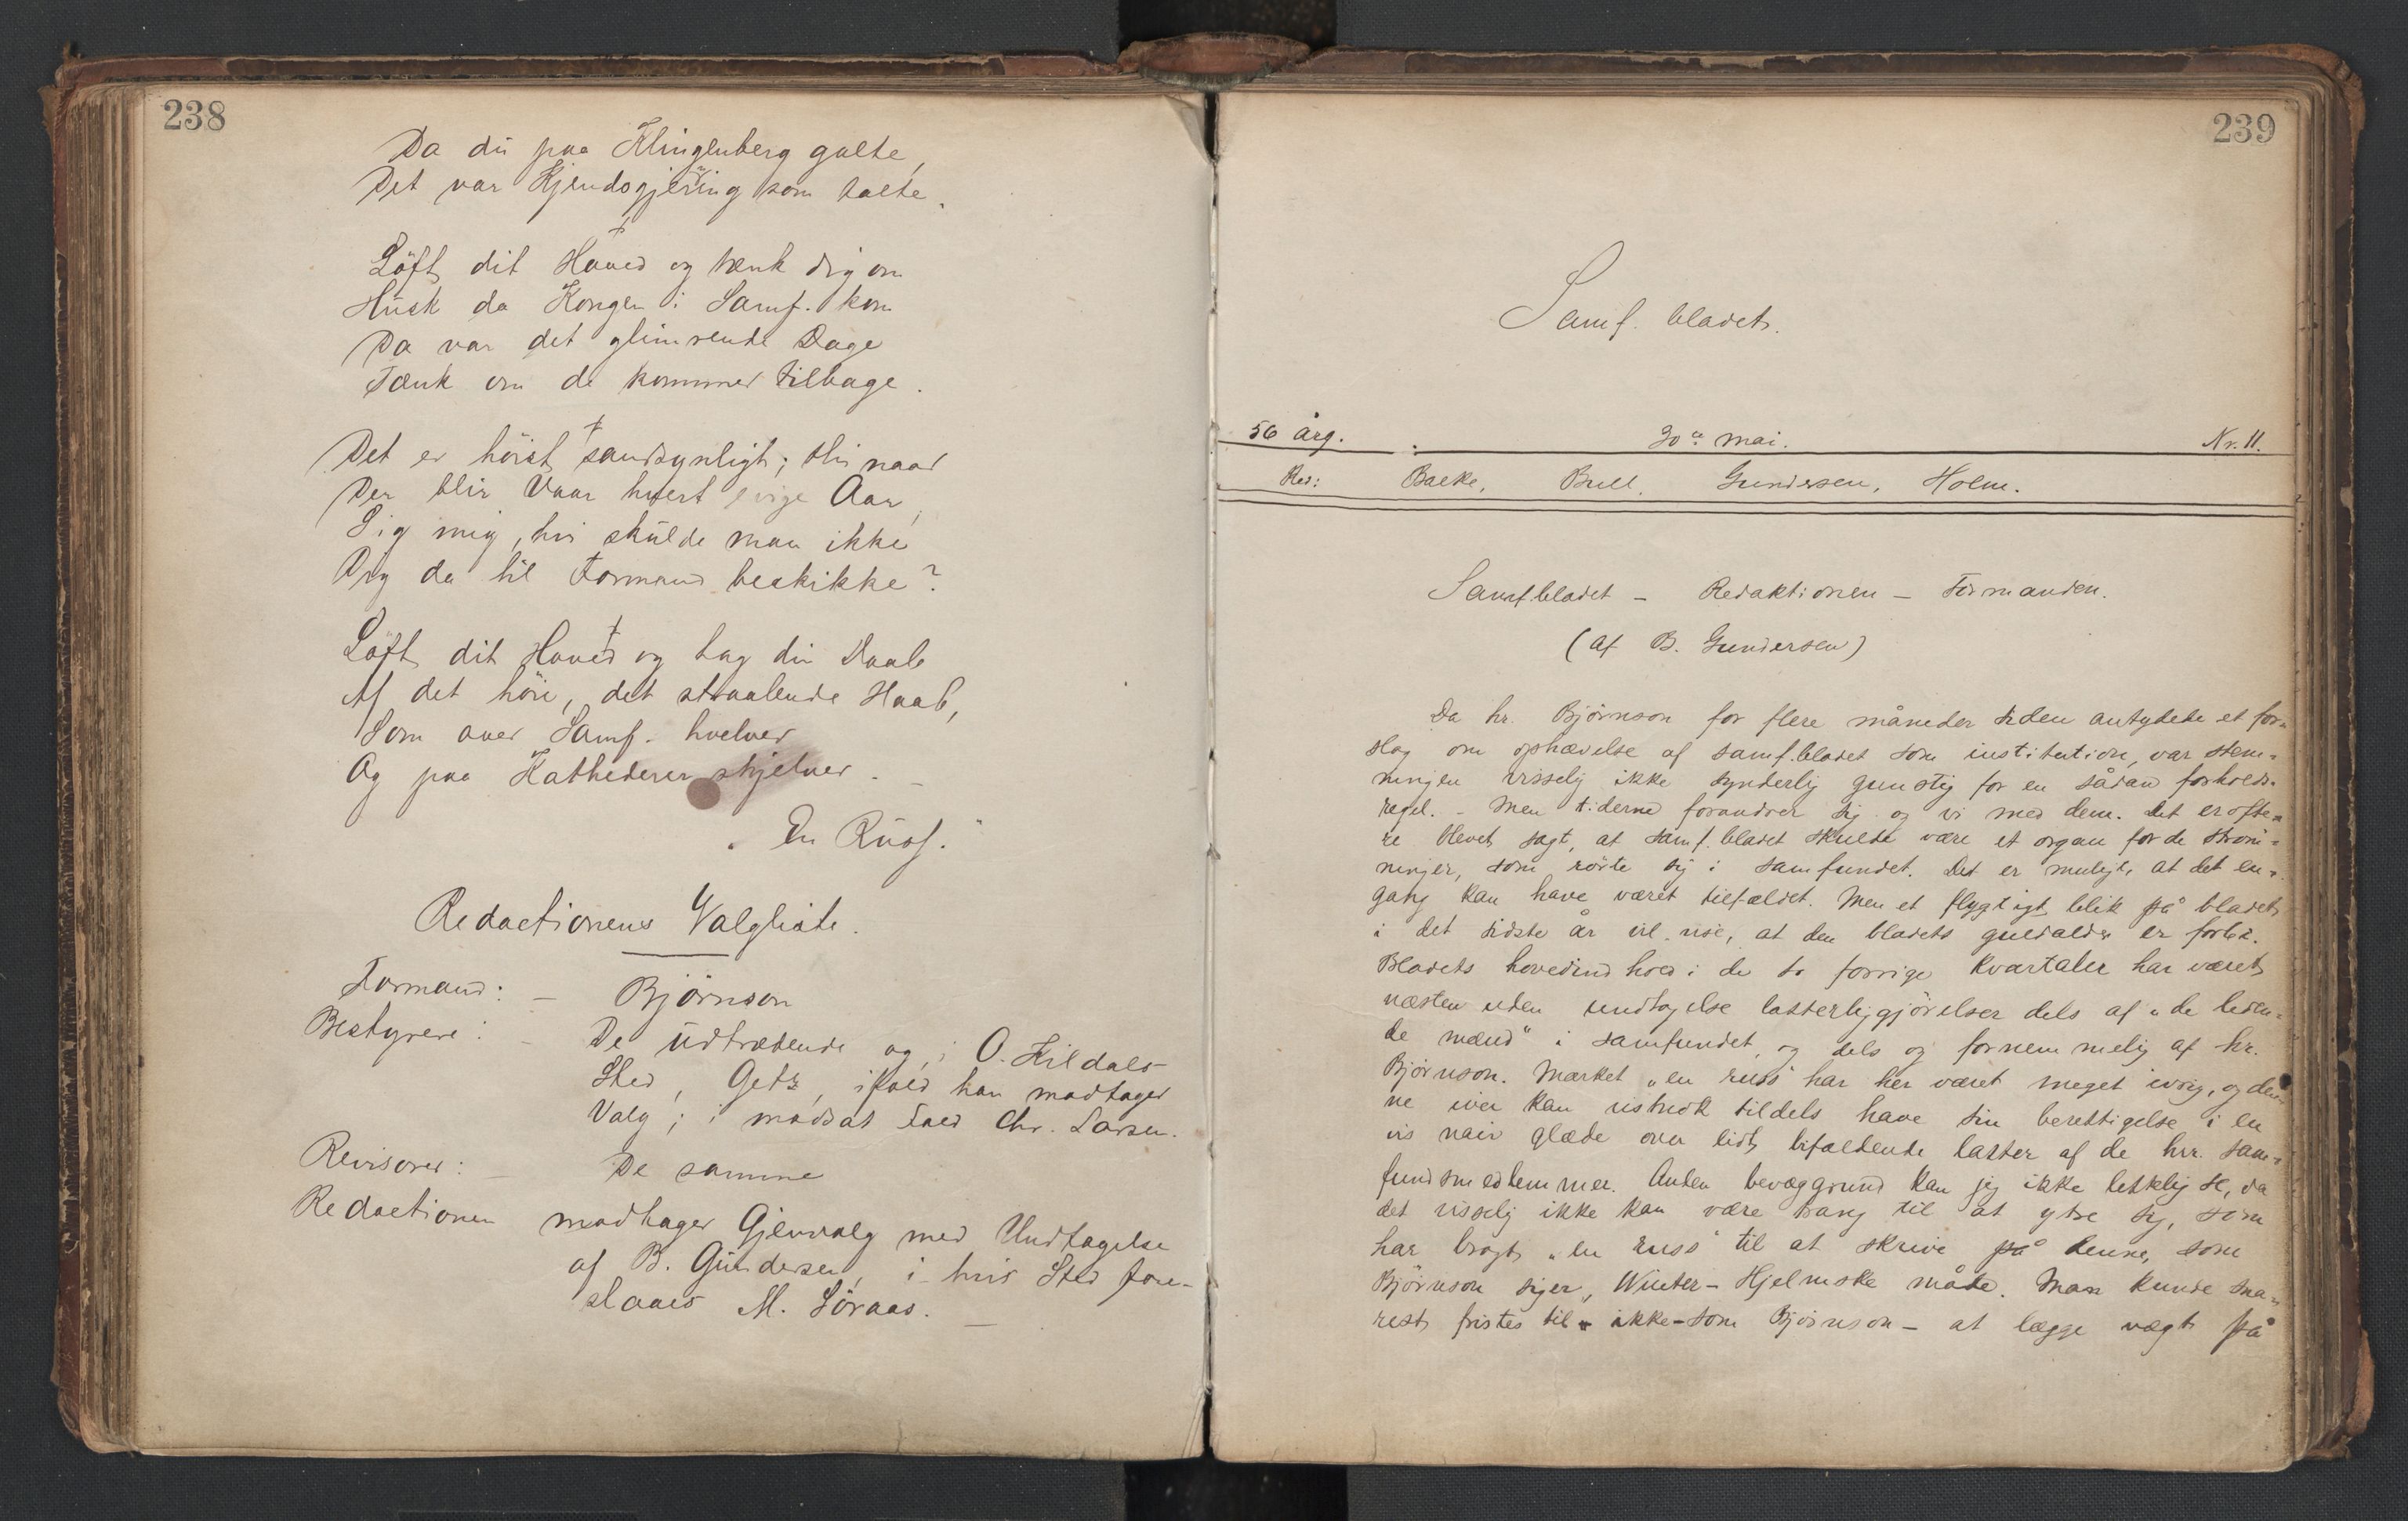 238
Da du paa Klingenberg galte,
Det var Kjendsgjerning som talte.
†
Löft dit Hoved og tænk dig om
Husk da Kongen i Samf. kom
Da var det glimrende Dage
Tænk om de kommer tilbage.
†
Det er höist sandsynligt; thi naar
Der blir Vaar hvert evige Aar,
Sig mig, hvi skulde man ikke
Dig da til Formand beskikke?
†
Löft dit Hoved og tag din Daab
Af det höie, det straalende Haab,
Som over Samf. hvelver
Og paa Kathederer skjelver. –
"En Russ."
Redactionens Valgliste.
Formand: – Björnson
Bestyrere: – De Udtrædende og, i O. Kildals
Sted, Getz, ifald han modtager
Valg; i modsat Fald Chr. Larsen.
Revisorer: – De samme
Redactionen modtager Gjenvalg med Undtagelse
af B. Gundersen, i hvis Sted fore-
slaaes M. Söraas. –
239
Samf. bladet.
56 årg. 30te mai. Nr. 11.
Red: Balke, Bull, Gundersen, Holm.
Samf.bladet – Redaktionen – Formanden.
(Af B. Gundersen)
Da hr. Björnson for flere måneder siden antydede et for=
slag om ophævelse af samf.bladet som institution, var stem=
ningen visselig ikke synderlig gunstig for en sådan forholds=
regel. – Men tiderne forandrer sig og vi med dem. Det er ofte=
re blevet sagt, at samf.bladet skulde være et organ for de ström=
ninger, som rörte sig i samfundet. Det er muligt, at det en=
gang kan have været tilfældet. Men et flygtigt blik på bladet
i det sidste år vil vise, at den bladets guldalder er forbi.
Bladets hovedindhold i de to forrige kvartaler har været
næsten uden undtagelse latterliggjörelser dels af "de leden=
de mænd" i samfundet, og dels og fornemmelig af hr.
Björnson. Mærket "en russ" har her været meget ivrig, og den=
ne iver kan vistnok tildels have sin berettigelse i en
vis naiv glæde over lidt bifaldende latter af de hrr. sam=
fundsmedlemmer. Anden bevæggrund kan jeg ikke letteIig se, da
det visselig ikke kan være trang til at ytre sig, som
har bragt "en russ" til at skrive på denne, som
Björnson siger, Winter-Hjelmske måde. Man kunde sna=
rest fristes til – ikke – som Björnson – at lægge vægt på